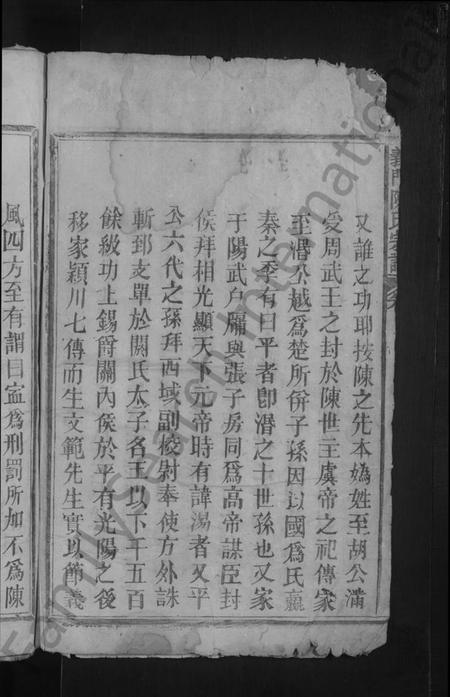 義門陳氏宗譜
又誰之功耶按陳之先本媯姓至胡公滿
受周武王之封於陳世主虞帝之祀傳家
至湣公越爲楚所併子孫因以國爲氏嬴
秦之季有曰平者卽湣之十世孫也又家
于陽武戶牖與張子房同爲高帝謀臣封
侯拜相光顯天下元帝時有諱湯者又平
公六代之孫拜西域副校尉奉使方外誅
斬郅支單於閼氏太子名王以下千五百
餘級功上錫爵關內侯於平有光陽之後
移家潁川七傳而生文範先生實以節義
風四方至有謂曰寍爲刑罰所加不爲陳
FamilySearch International